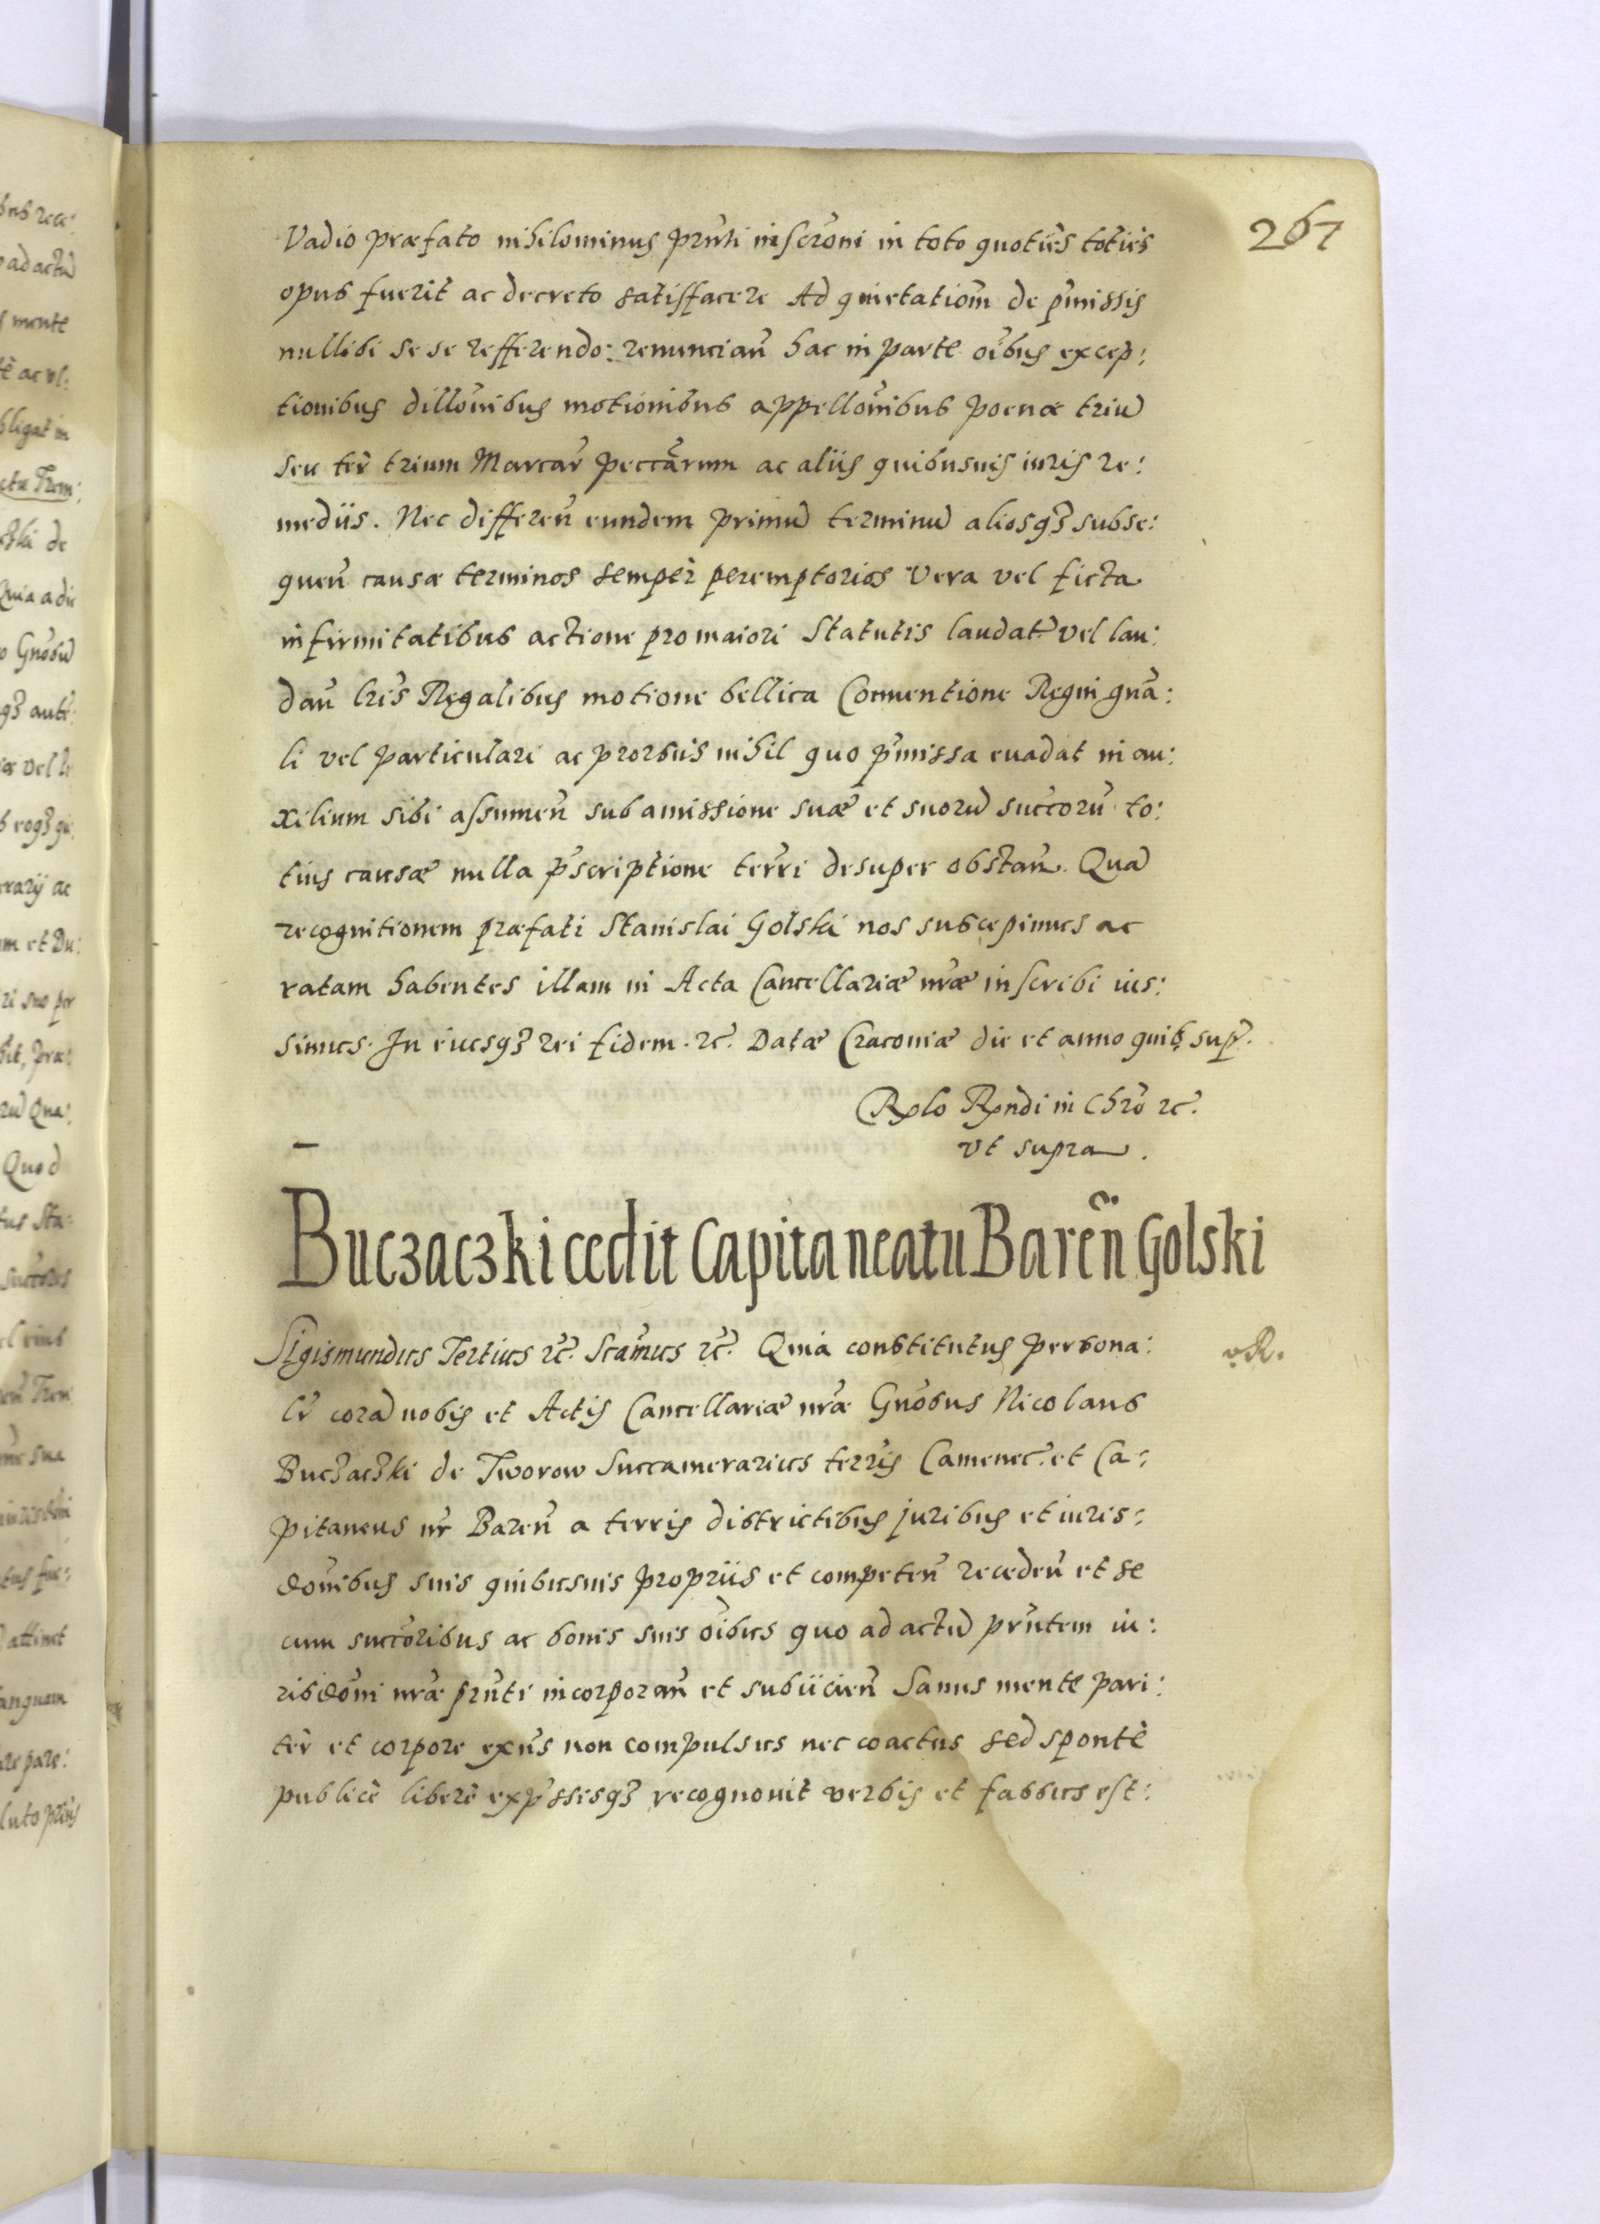 267
Vadio præfato nihilominus prũti inscrõni in toto quoties toties
opus fuerit ac decreto satisfacere Ad quietatioñ de p̃missis
nullibi se se refferendo: renunciañ hac in parte õibus excep:
tionibus dillõnibus motionibus appellõnibus poenæ triũ
seu ter trium Marcar̃ peccãrum ac aliis quibusuis iuris re:
mediis. Nec differeñ eundem primũ terminũ aliosq3 subse:
queñ causæ terminos semper peremptorios Vera vel ficta
infirmitatibus actione pro maiori Statutis laudat̃ vel lau:
dañ lr̃is Regalibus motione bellica Conuentione Regni gnã:
li vel particulari ac prorsus nihil quo p̃missa euadat in au:
xilium sibi assumeñ sub amissione suæ et suorũ succorũ to:
tius causæ nulla p̃scriptione terr̃i desuper obstañ. Quã
recognitionem præfati Stanislai Golski nos suscepimus ac
ratam habentes illam in Acta Cancellariæ nr̃æ inscribi ius:
simus. In eiusq3 rei fidem. rc̃. Datæ Cracouiæ die et anno quib9 sup̃.
Rplo Rpndi in Chrõ rc̃.
vt supra.
Buczaczki cedit Capitaneatu Bareñ Golski
Sigismundus Tertius rc̃. Scãmus rc̃. Quia constitutus persona:
lr̃ corã nobis et Actis Cancellariæ nr̃æ Gnõsus Nicolaus
Buc3ac3ki de Tworow Succamerarius terris Camenec̃. et Ca:
pitaneus nr̃ Bareñ a terris districtibus juribus et iuris:
dõnibus suis quibusuis propriis et competeñ recedeñ et se
cum succõribus ac bonis suis õibus quo ad actũ prñtem iu:
risdõni nr̃æ prñti incorporañ et subiicieñ Sanus mente pari:
ter et corpore exñs non compulsus nec coactus sed sponte
publice libere exp̃ssesq3 recognouit verbis et fassus est: